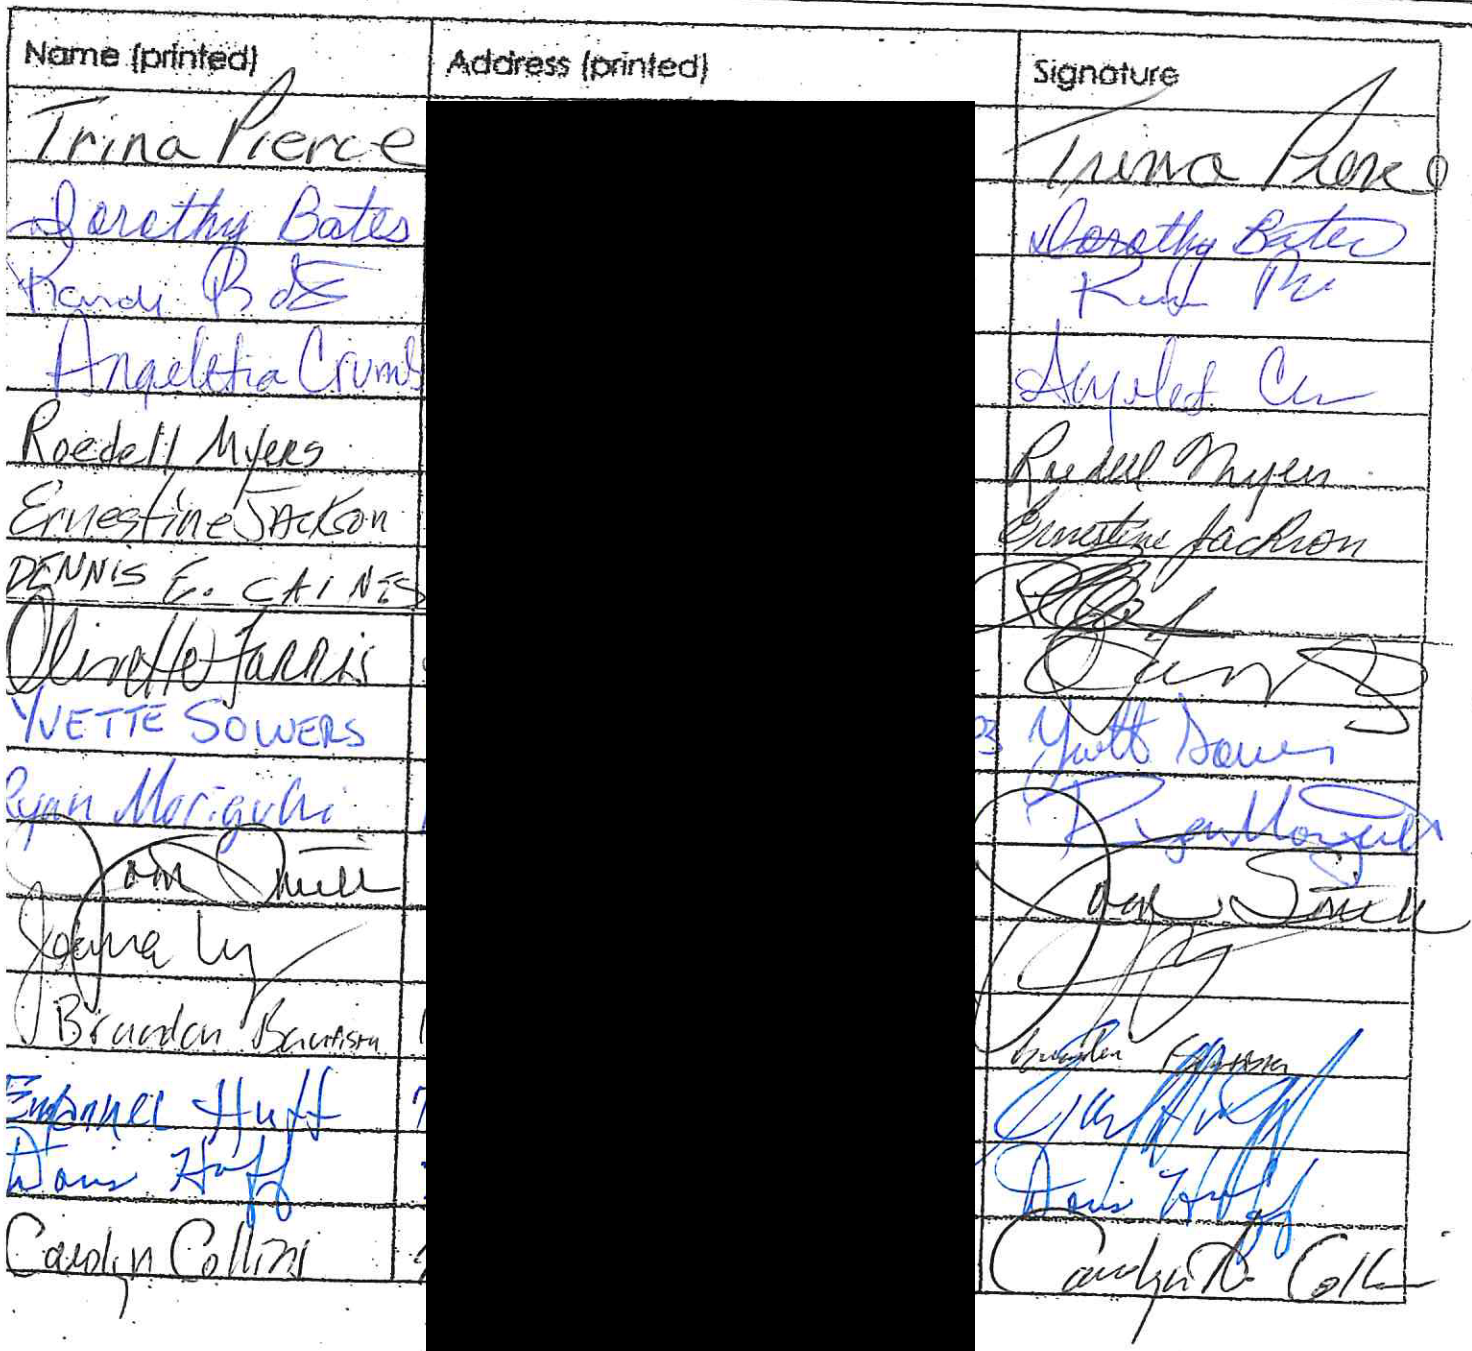 Name (printed) Address (printed) Signature
Trina Pierce Trina Pierce
Dorothy Bates Dorothy Bates
Kandi
Angeletia Crumb
Roedell Myers Roedell Myers
Ernestine Jackson Ernestine Jackson
DENNIS E. CAINES
Olinette Farris
YVETTE SOWERS Yvette Sowers
Ryan Moriguchi Ryan Moriguchi
Smith Smith
Joanna Ly
Brandon Bautista Brandon Bautista
Emannel Huff Huff
Doris Huff Doris Huff
Carolyn Collins Carolyn Collins